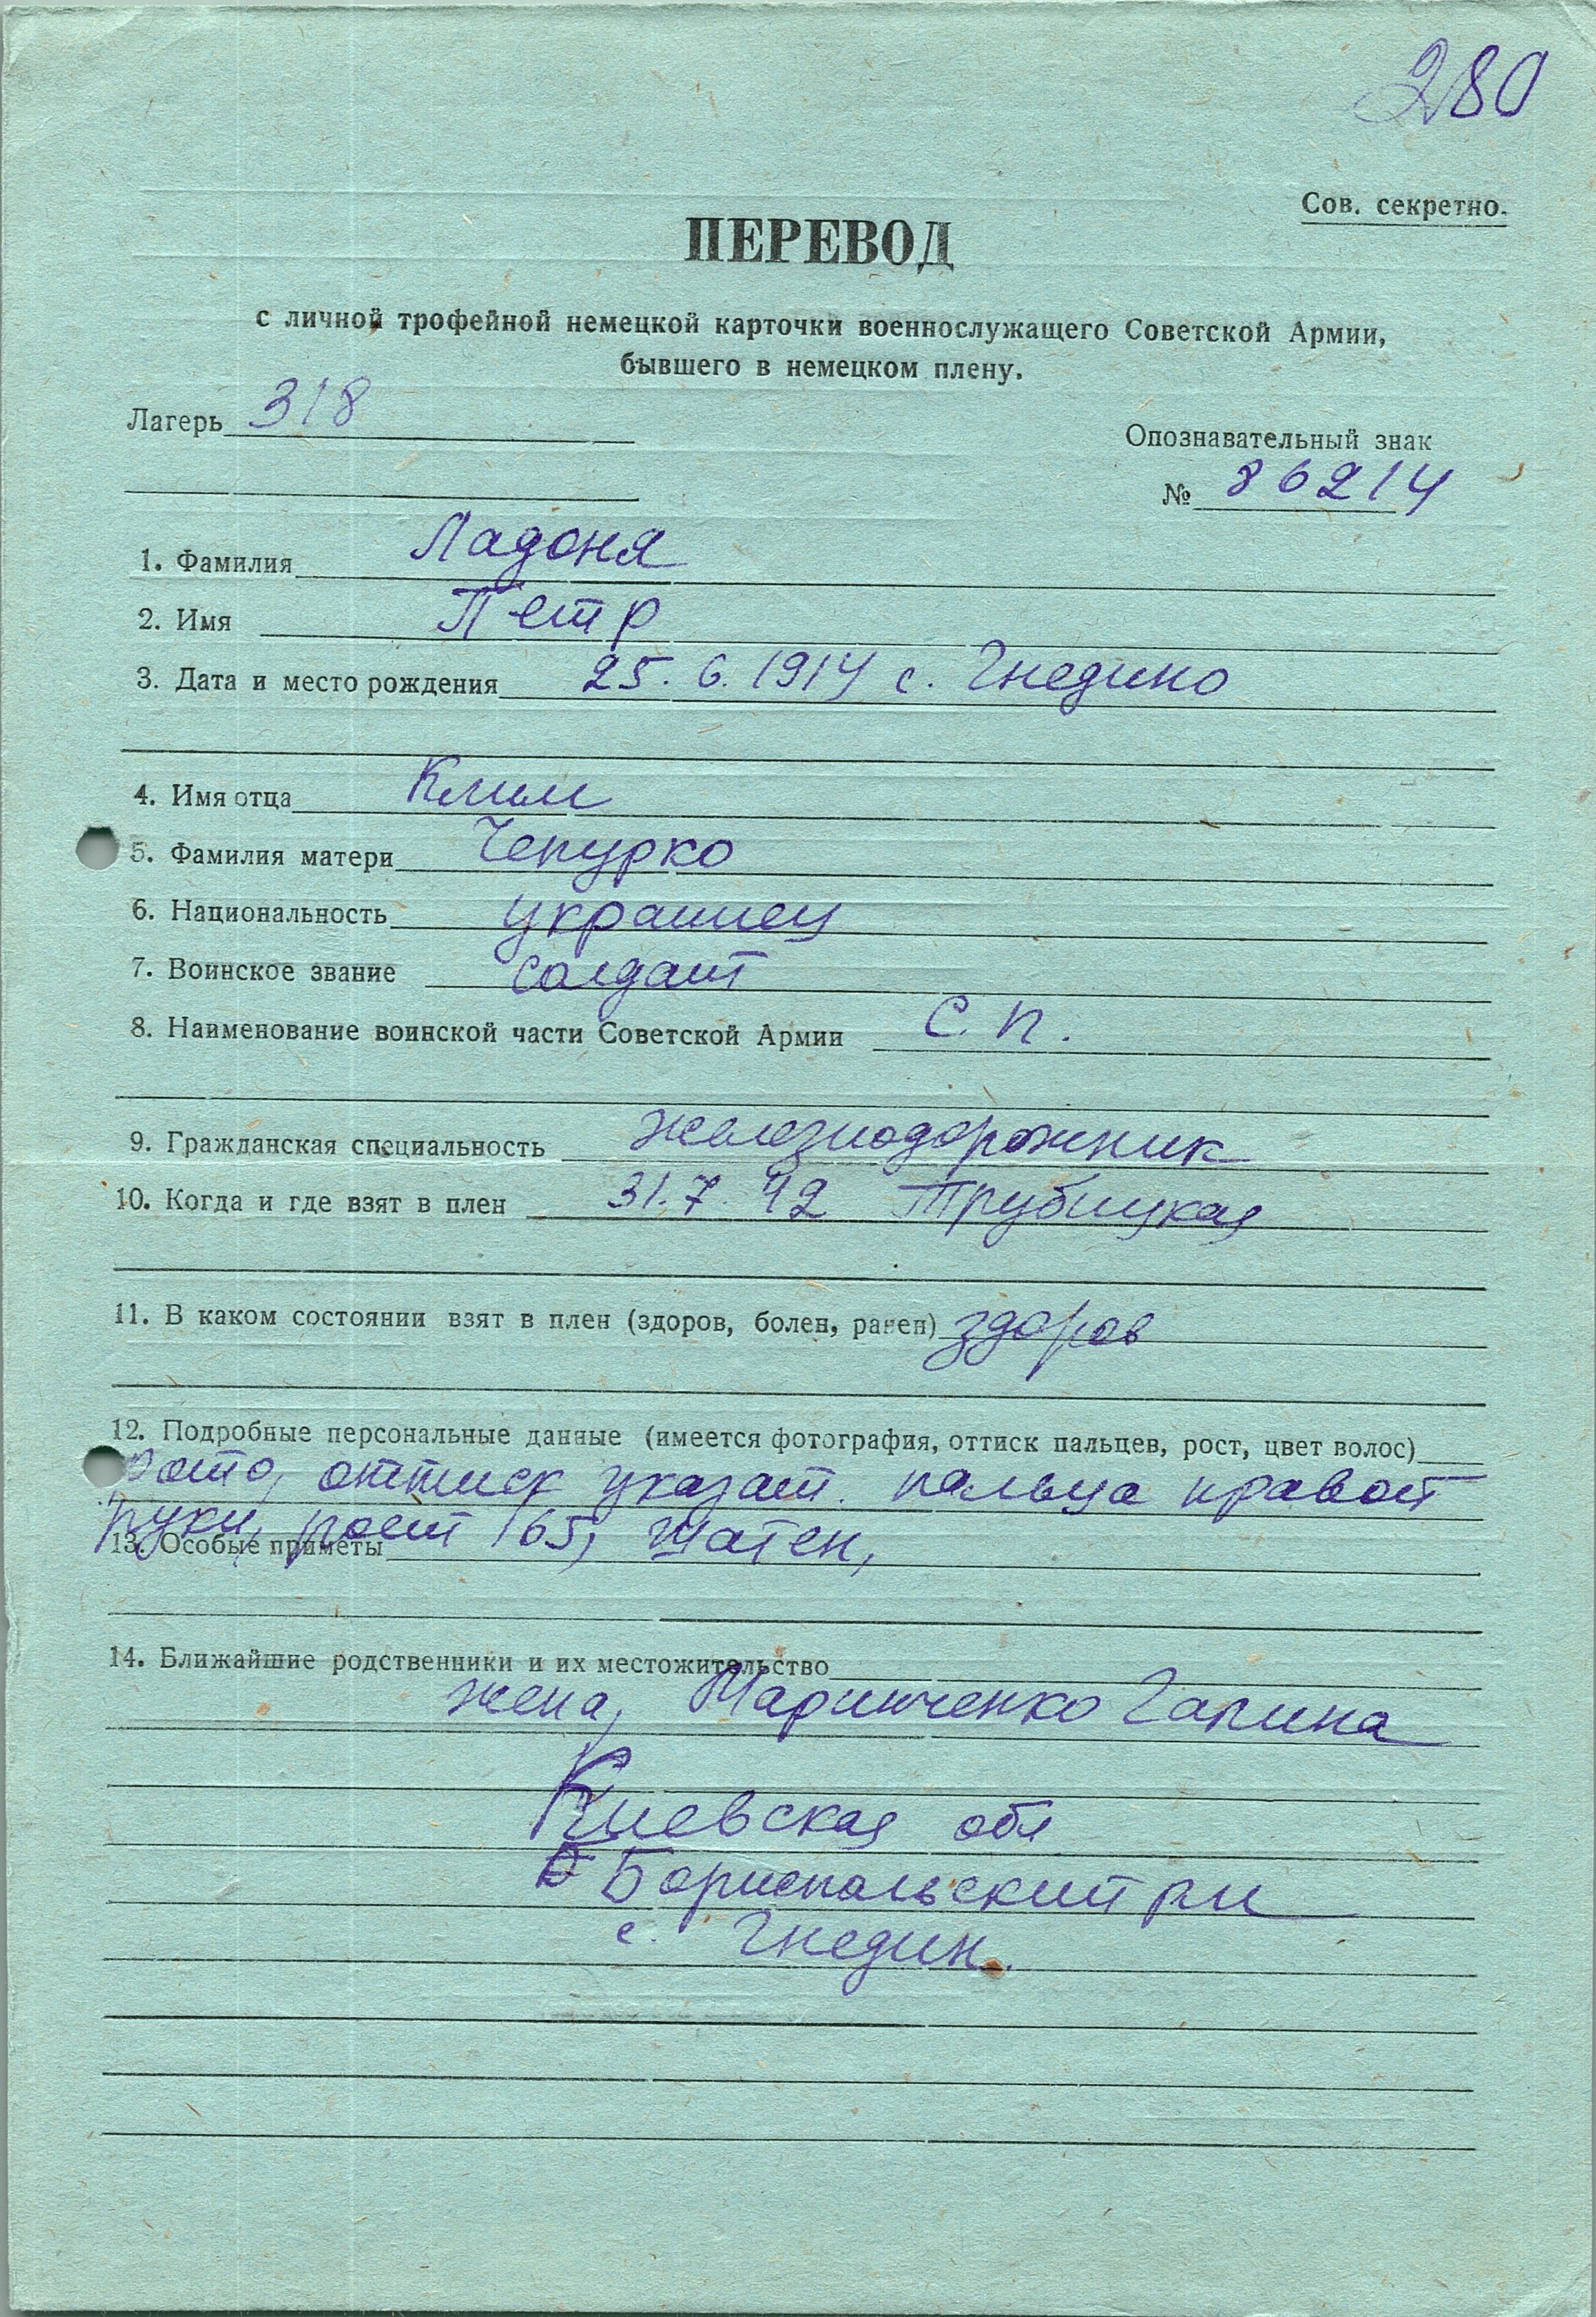 280
Сов. секретно.
ПЕРЕВОД
с личной трофейной немецкой карточки военнослужащего Советской Армии,
бывшего в немецком плену.
Лагерь 318
Опознавательный знак
№ 86214
1. Фамилия Ладоня
2. Имя Петр
3. Дата и место рождения 25. 6. 1914 с. Гнедино
4. Имя отца Клим
5. Фамилия матери Чепурко
6. Национальность украинец
7. Воинское звание солдат
8. Наименование воинской части Советской Армии С. п.
9. Гражданская специальность железнодорожник
10. Когда и где взят в плен 31. 7. 42 Трубицкая
11. В каком состоянии взят в плен (здоров, болен, ранен) здоров
12. Подробные персональные данные (имеется фотография, оттиск пальцев, рост, цвет волос)
фото, оттиск указат. пальца правой
руки, рост 165, шатен,
13. Особые приметы
14. Ближайшие родственники и их местожительство
жена, Маринченко Галина
Киевская обл
Бориспольский рн
с. Гнедин.